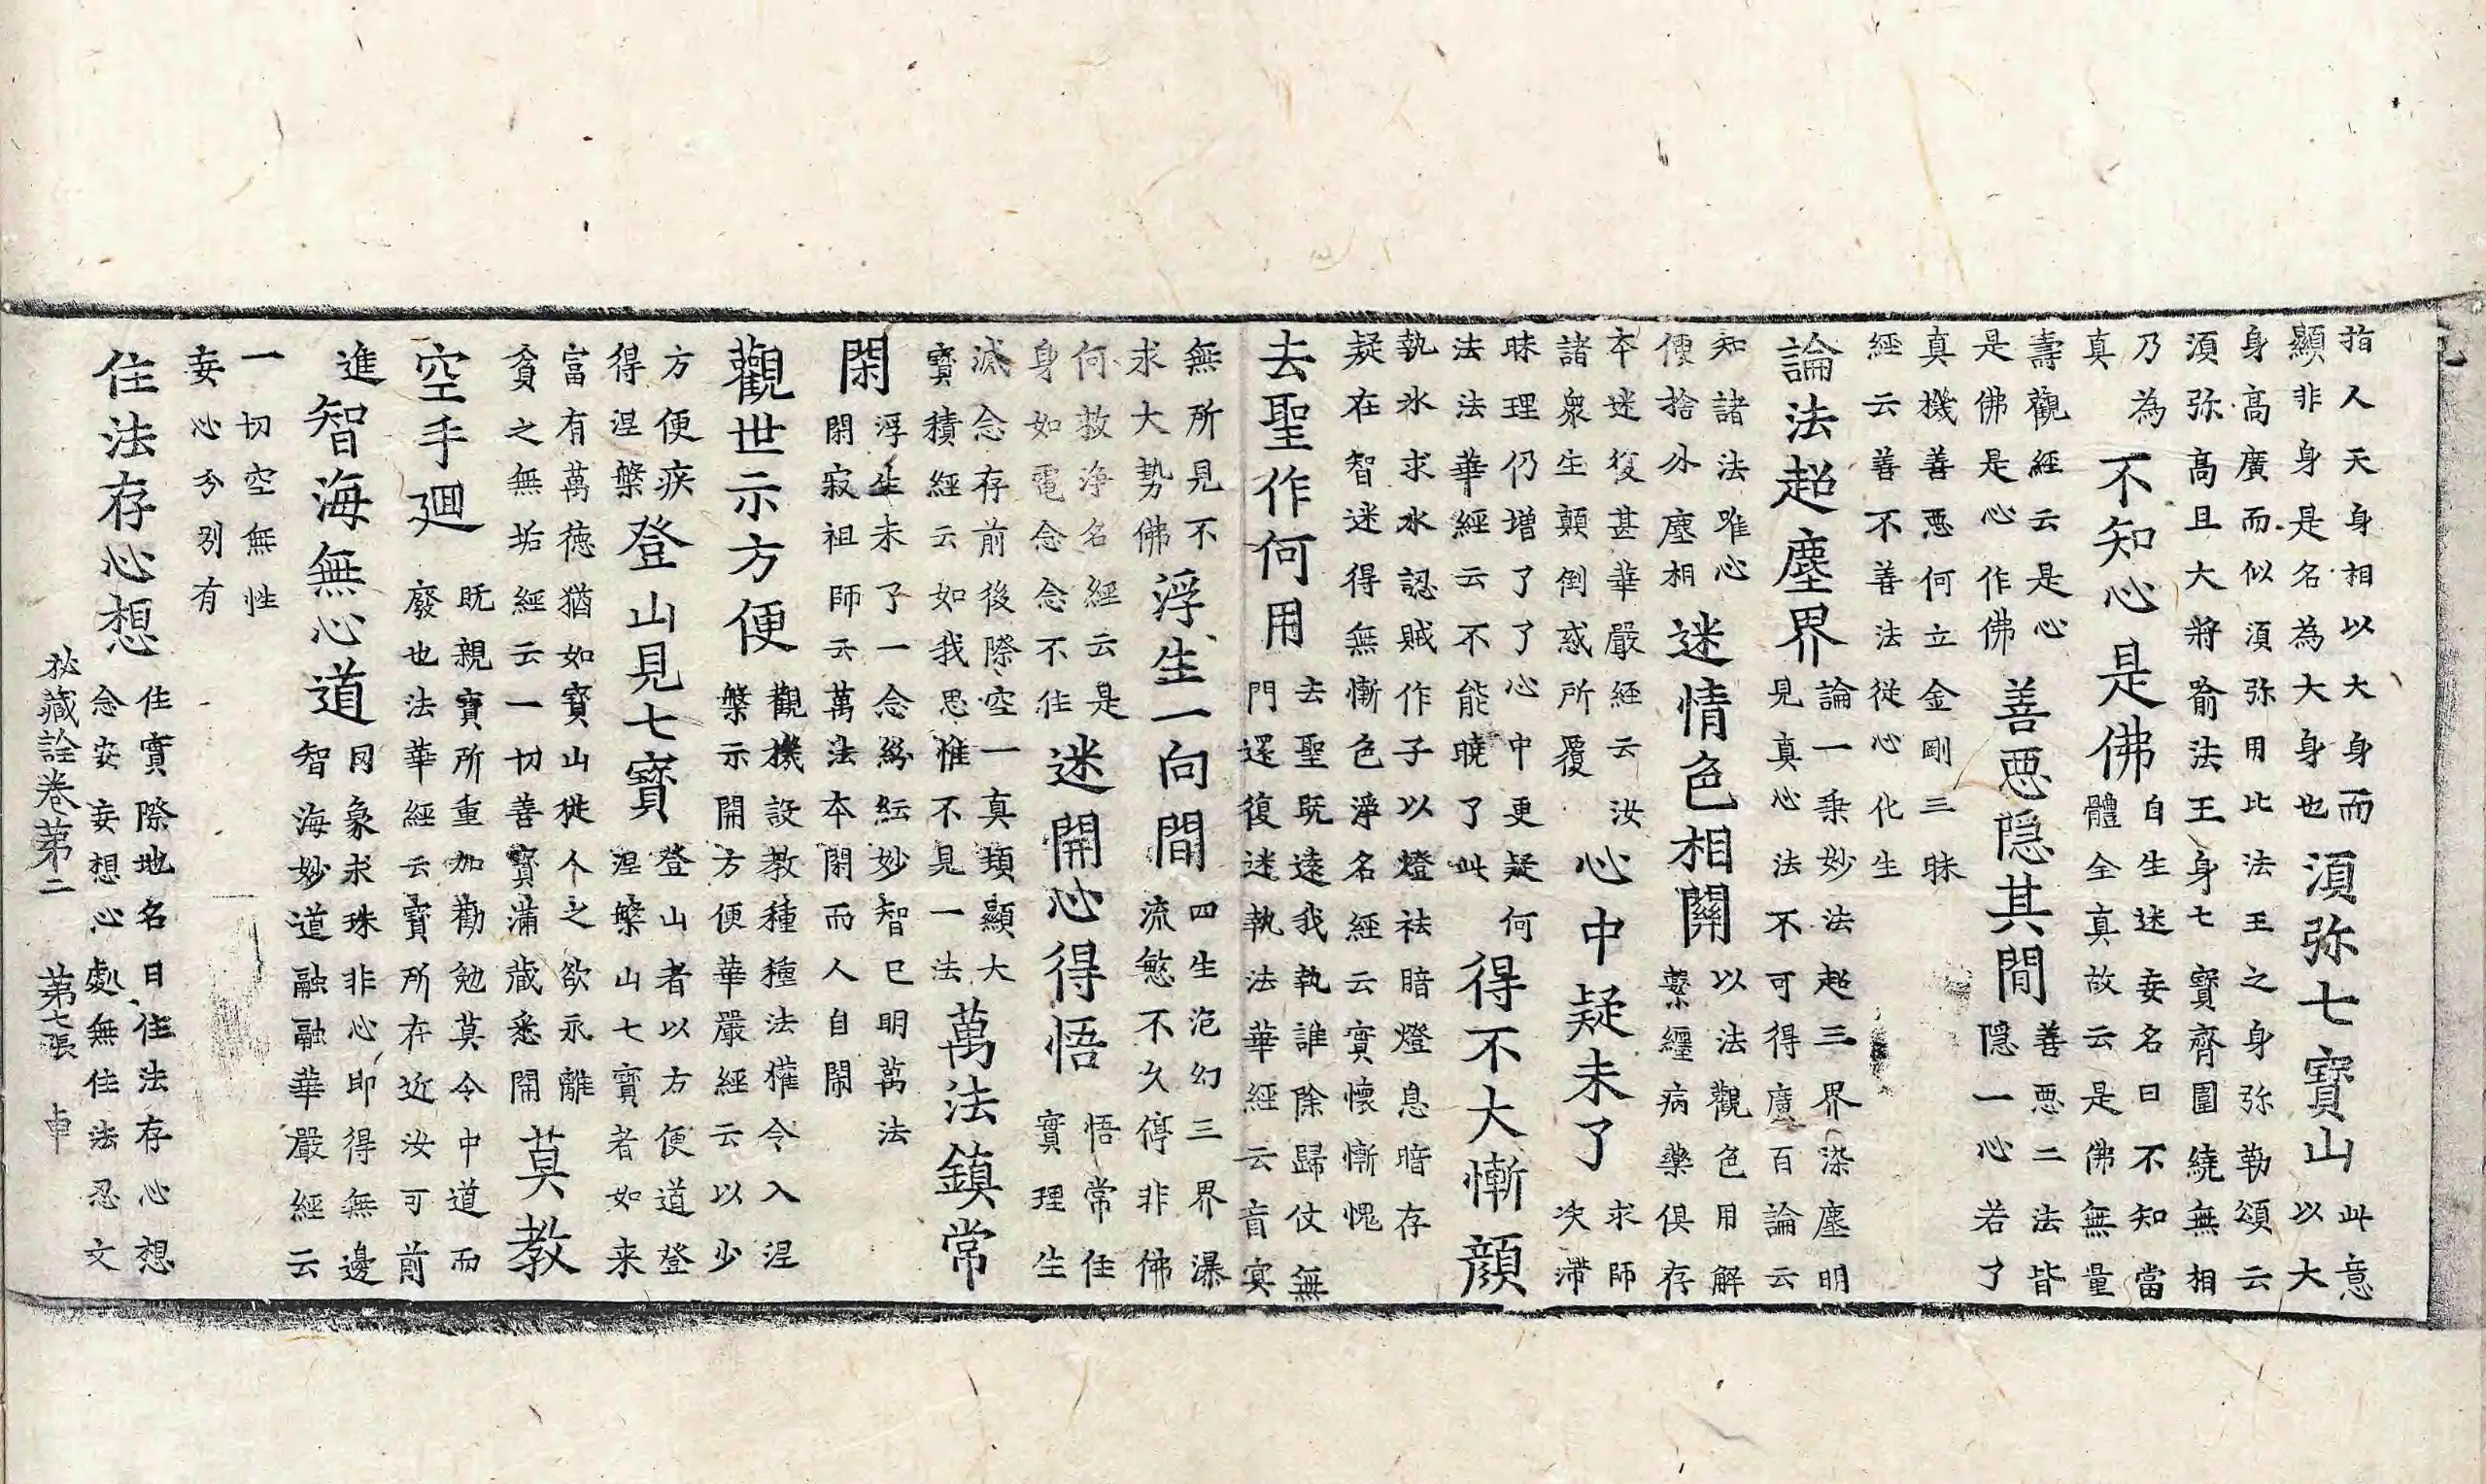 指人天身相以大身而
顯非身是名為大身也
須弥七寳山
此意
以大
身高廣而似須弥用比法王之身弥勒頌云
須弥高且大將喻法王身七寳齊圍繞無相
乃為
真
不知心是佛
自生迷妄名曰不知當
體全真故云是佛無量
壽觀經云是心
是佛是心作佛
善惡隐其間
善惡二法皆
隐一心若了
真機善惡何立金剛三昧
經云善不善法從心化生
論法超塵界
論一乗妙法超三界染塵明
見真心法不可得廣百論云
知諸法唯心
便捨外塵相
迷情色相關
以法觀色用解
繫纏病藥俱存
夲迷復甚華嚴經云汝
諸衆生顛倒惑所覆
心中疑未了
求師
决滯
昧理仍増了了心中更疑何
法法華經云不能曉了此
得不大慚顔
執氷求水認賊作子以燈祛暗燈息暗存
疑在智迷得無慚色淨名經云實懷慚愧
去聖作何用
去聖既遠我執誰除歸仗無
門還復迷執法華經云音㝠
無所見不
求大勢佛
浮生一向間
四生泡幻三界瀑
流慜不久停非佛
何救浄名經云是
身如電念念不住
迷開心得悟
悟常住
實理生
滅念存前後際空一真頓顯大
寳積經云如我思惟不見一法
萬法鎮常
閑
浮生未了一念紛紜妙智已明萬法
閑寂祖師云萬法本閑而人自鬧
觀世示方便
觀機設教種種法權令入涅
槃示開方便華嚴經云以少
方便疾
得涅槃
登山見七寳
登山者以方便道登
涅槃山七寳者如来
富有萬徳猶如寳山從人之欲永離
貪之無垢經云一切善寳滿藏悉開
莫教
空手廻
既親寳所重加勸勉莫令中道而
廢也法華經云寳所在近汝可前
進
智海無心道
罔象求珠非心即得無邊
智海妙道融融華嚴經云
一切空無性
妄心分別有
住法存心想
住實際地名曰住法存心想
念妄妄想心處無住法忍文
秘藏詮卷苐二 苐七張